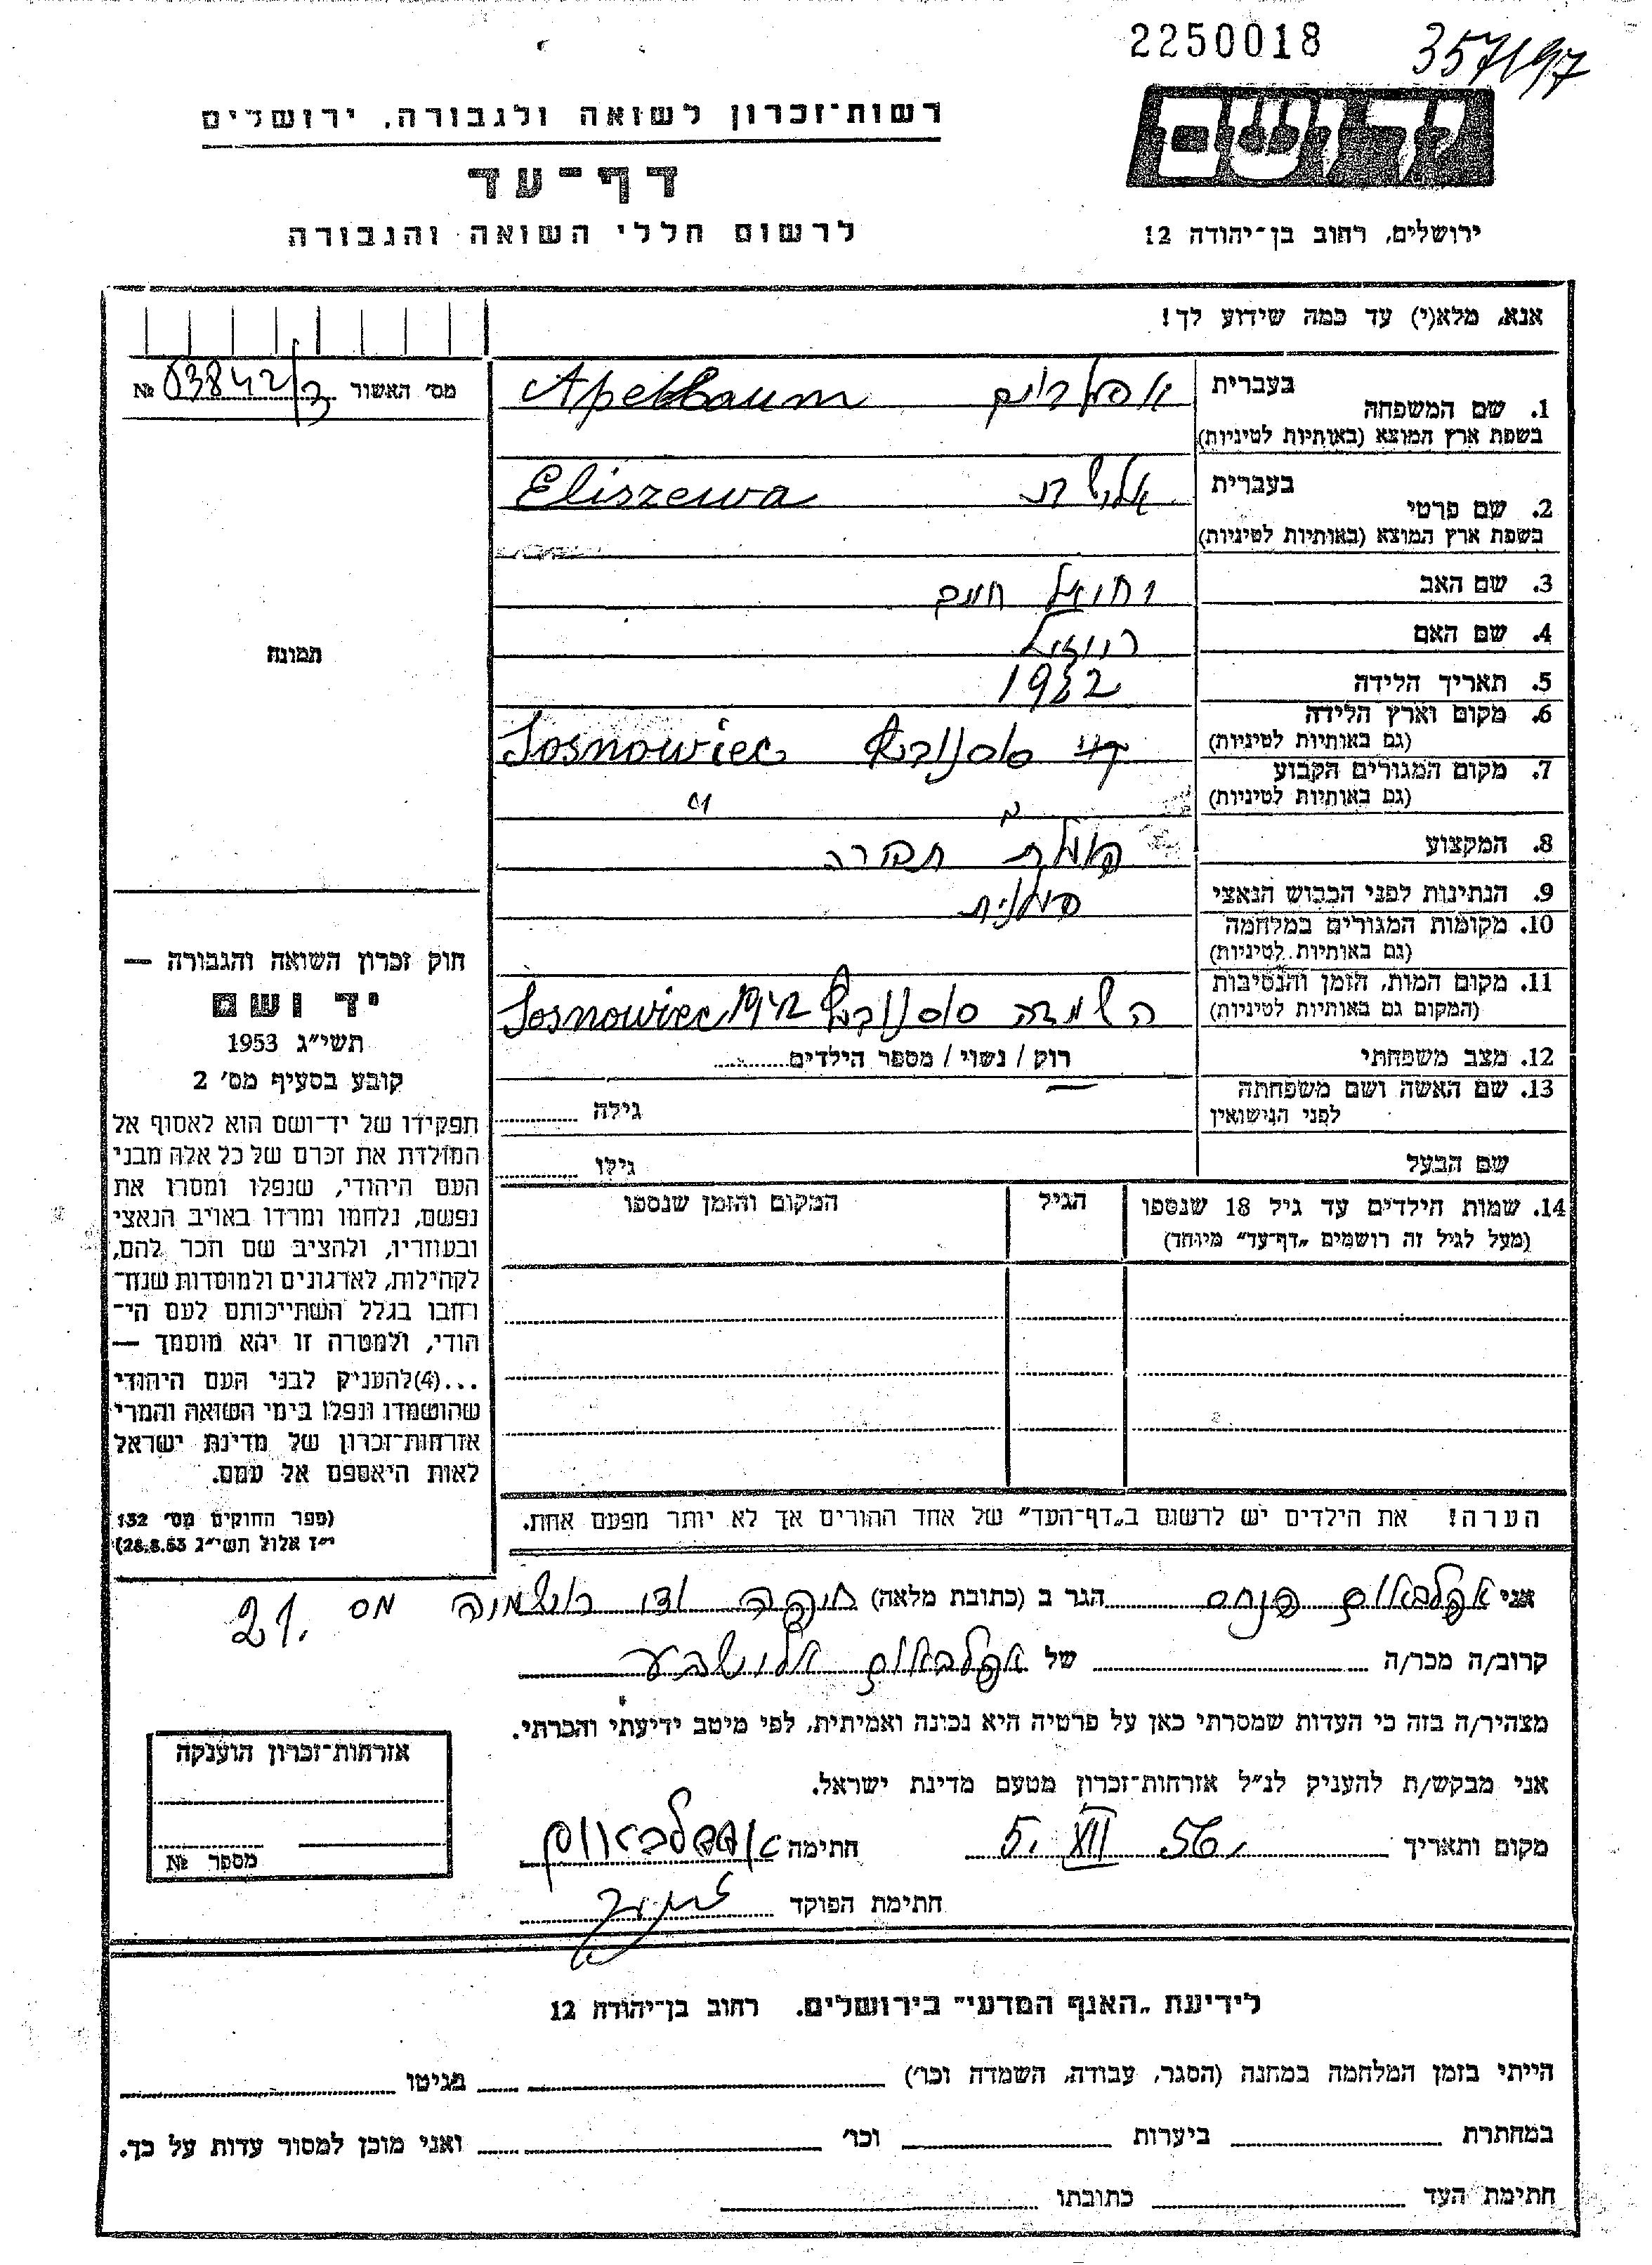 2250018
357/97
רשות־זכרון לשואה ולגבורה, ירושלים
יד ושם
דף־עד
לרשום חללי השואה והגבורה
ירושלים, רחוב בן־יהודה 12
אנא, מלא(י) עד כמה שידוע לך!
מס׳ האשור № 03842/3
בעברית
1. שם המשפחה Apelbaum
בשפת ארץ המוצא (באותיות לטיניות)
בעברית
2. שם פרטי Eliszewa
בשפת ארץ המוצא (באותיות לטיניות)
3. שם האב יחיאל חיים
4. שם האם
5. תאריך הלידה
6. מקום וארץ הלידה סוסנוביץ Sosnowiec
(גם באותיות לטיניות)
7. מקום המגורים הקבוע
(גם באותיות לטיניות) "
8. המקצוע תפורה
9. הנתינות לפני הכבוש הנאצי פולנית
10. מקומות המגורים במלחמה
(גם באותיות לטיניות)
11. מקום המות, הזמן והנסיבות
(המקום גם באותיות לטיניות) השמדה סוסנוביץ 1942 Sosnowiec
12. מצב משפחתי רוק / נשוי / מספר הילדים
13. שם האשה ושם משפחתה
לפני הנישואין גילה
שם הבעל גילו
14. שמות הילדים עד גיל 18 שנספו הגיל המקום והזמן שנספו
(מעל לגיל זה רושמים „דף־עד״ מיוחד)
תמונה
חוק זכרון השואה והגבורה —
יד ושם
תשי״ג 1953
קובע בסעיף מס׳ 2
תפקידו של יד־ושם הוא לאסוף אל
המולדת את זכרם של כל אלה מבני
העם היהודי, שנפלו ומסרו את
נפשם, נלחמו ומרדו באויב הנאצי
ובעוזריו, ולהציב שם וזכר להם,
לקהילות, לארגונים ולמוסדות שנח־
רחבו בגלל השתייכותם לעם הי־
הודי, ולמטרה זו יהא מוסמך —
...(4)להעניק לבני העם היהודי
שהושמדו ונפלו בימי השואה והמרי
אזרחות־זכרון של מדינת ישראל
לאות היאספם אל עמם.
(ספר החוקים מס׳ 132
י״ז אלול תשי״ג 28.8.53)
הערה! את הילדים יש לרשום ב„דף־העד״ של אחד ההורים אך לא יותר מפעם אחת.
אני אפלבאום פנחס הגר ב (כתובת מלאה) חיפה ודי רושמיה מס 21.
קרוב/ה מכר/ה של אפלבאום אלישבע
מצהיר/ה בזה כי העדות שמסרתי כאן על פרטיה היא נכונה ואמיתית, לפי מיטב ידיעתי והכרתי.
אני מבקש/ת להעניק לנ״ל אזרחות־זכרון מטעם מדינת ישראל.
מקום ותאריך 5. XII 56. חתימה אפפלבאום
חתימת הפוקד
אזרחות־זכרון הוענקה
מספר №
לידיעת „האגף המדעי״ בירושלים. רחוב בן־יהודה 12
הייתי בזמן המלחמה במחנה (הסגר, עבודה, השמדה וכו׳) בגיטו
במחתרת ביערות וכו׳ ואני מוכן למסור עדות על כך.
חתימת העד כתובתו